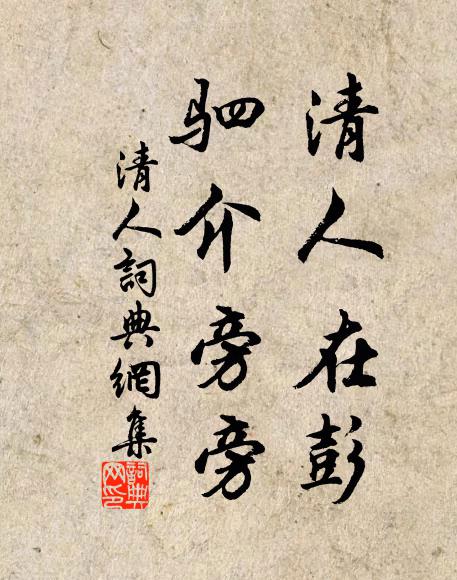 清人在彭
驷介旁旁
清人詞典網集
詞典
网印